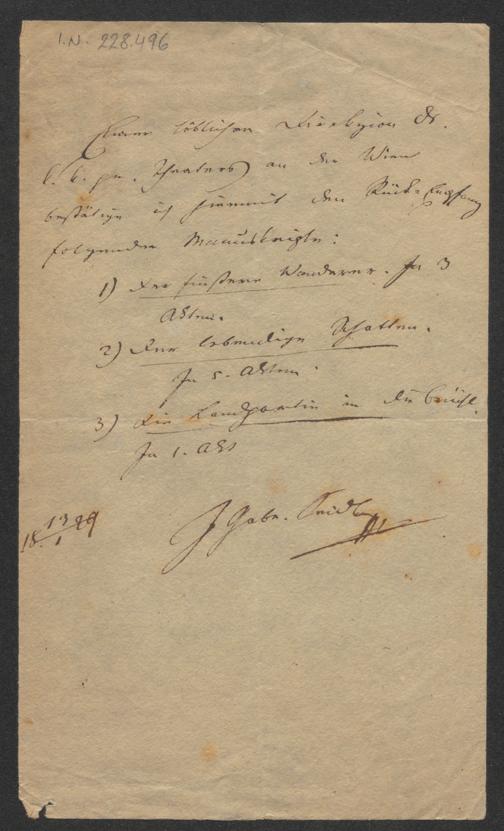 I.N. 228.496
Einer löblichen Direkzion des
k. k. pr. Theaters an der Wien
bestätige ich hiemit den Rück-Empfang
folgender Manuskripte:
1) Der finstere Wanderer. In 3
Akten.
2) Der lebendige Schatten.
In 5. Akten.
3) Die Landpartie in die Brühl.
In 1. Akt
18 13/1 29
J Gabr. Seidl